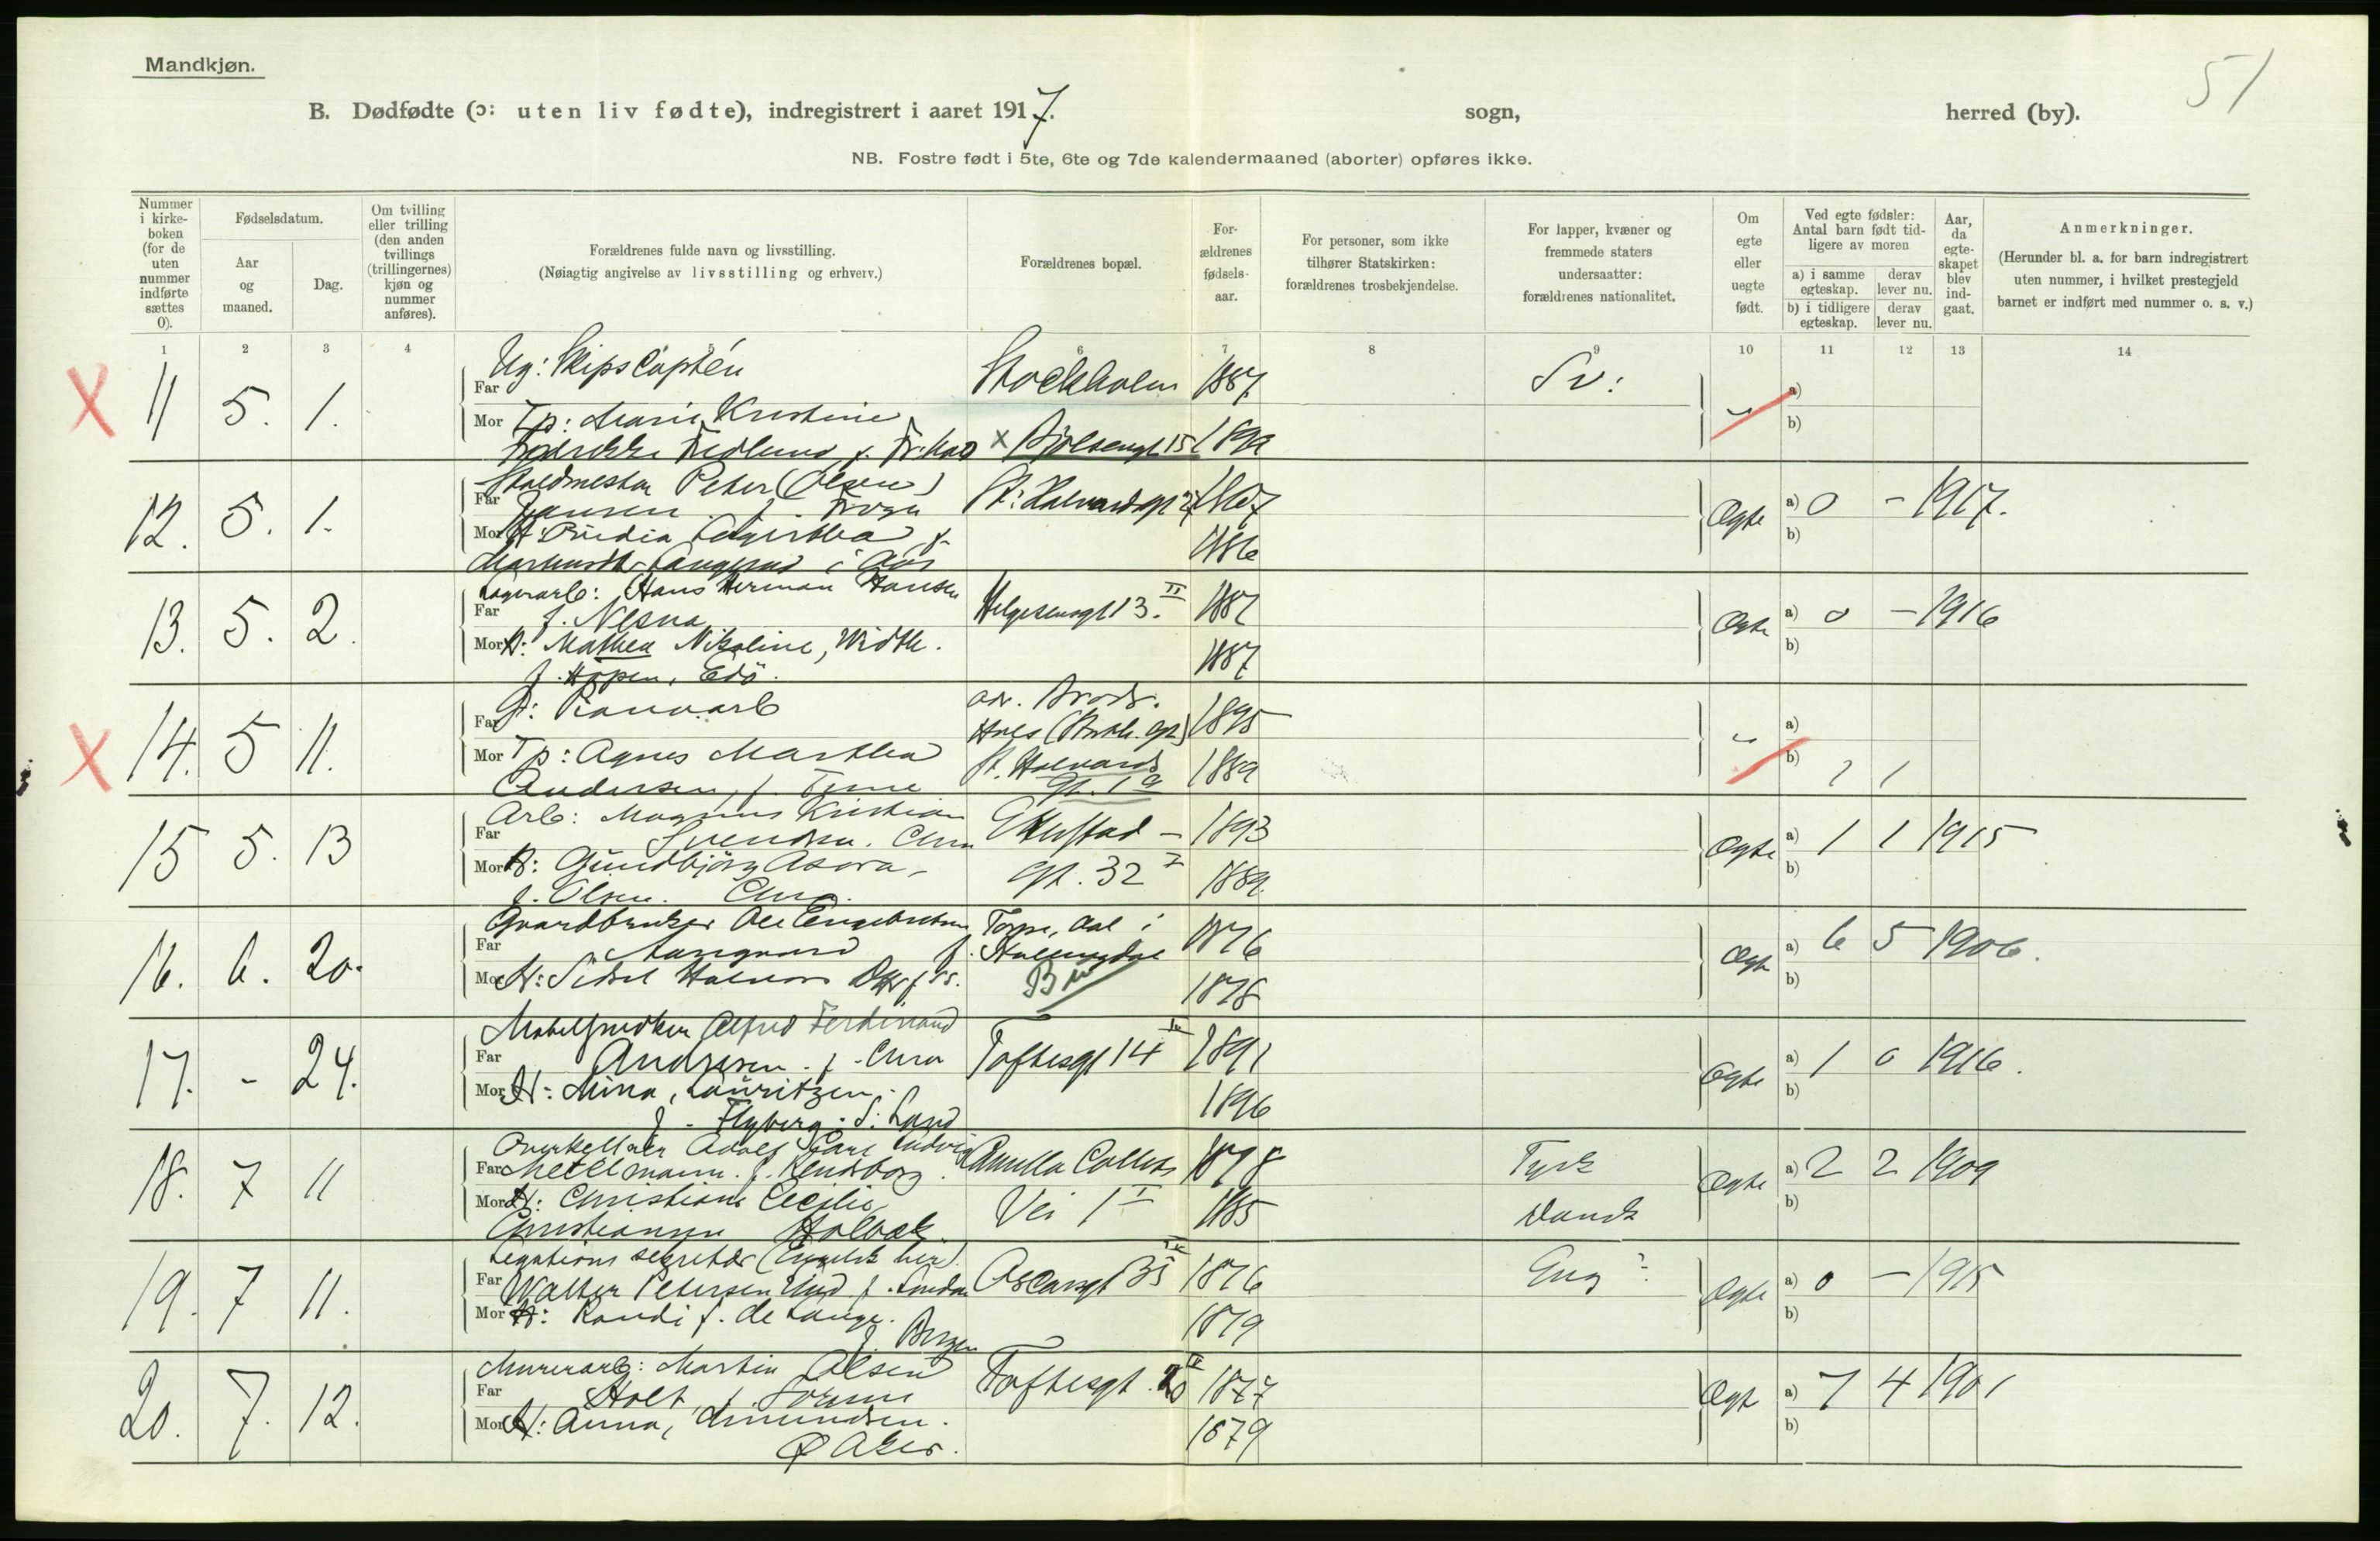 Mandkjøn.
51
B. Dødfødte (ɔ: uten liv fødte), indregistrert i aaret 1917. sogn, herred (by).
NB. Fostre født i 5te, 6te og 7de kalendermaaned (aborter) opføres ikke.
Nummer i kirke- boken (for de uten nummer indførte sættes 0).
Fødselsdatum.
Aar og maaned.
Dag.
Om tvilling eller trilling (den anden tvillings (trillingernes) kjøn og nummer anføres).
Forældrenes fulde navn og livsstilling.
(Nøiagtig angivelse av livsstilling og erhverv.)
Forældrenes bopæl.
For- ældrenes fødsels- aar.
For personer, som ikke tilhører Statskirken: forældrenes trosbekjendelse.
For lapper, kvæner og fremmede staters undersaatter: forældrenes nationalitet.
Om egte eller uegte født.
Ved egte fødsler: Antal barn født tid- ligere av moren
a) i samme egteskap. derav lever nu.
b) i tidligere egteskap. derav lever nu.
Aar, da egte- skapet blev ind- gaat.
Anmerkninger.
(Herunder bl. a. for barn indregistrert uten nummer, i hvilket prestegjeld barnet er indført med nummer o. s. v.)
1 2 3 4 5 6 7 8 9 10 11 12 13 14
X 11 5. 1. Far Ug: Skips Stockholm 1887 Sv: a)
Mor Tp: Marie Kristine b)
Fredrikke Hedlund f. X 15
12. 5. 1. Far Peter (Olsen) St: Halvardsgt Egte a) 0 - 1917.
Jansen f. Mor b) 1886
13. 5. 2. Far Lagerarb: Hans Herman Hansen Helgesensgt 13. II 1887 Egte a) 0 - 1916
f. Nesna
Mor H: Mathea Nikoline, Width. 1887 b)
f. Hopen, Edö.
X 14. 5 11. Far 1895 a)
Mor Tp: Agnes Marthea St. Halvards 1889 b) 1
Andersen, f. gt. 1 a
15 5. 13 Far Arb: Magnus Kristian Ekerstad - 1893 Egte a) 1 1 1915
Svendsen. Chra
Mor H: Gundbjörg Asora - gt. 32 I 1889. b)
f. Olsen. Chra.
16. 6. 20. Far Gaardbruker Ole Engebretsen Torpe, Aal i 1876 Egte a) 6 5 1906.
f. Hallingdal
Mor H: Sidsel Halvors Dtr f. ss. 1878 b)
17. - 24. Far Möbelsnedker Alfred Ferdinand
Andresen. f. Chra Toftesgt 14 1891 Egte a) 1 0 1916.
Mor H: Mina, Lauritzen. 1896 b)
f - Flyberg. S: Land
18. 7 11 Overkellner Adolf Carl Ludvig Camilla Colletts 1878 Tysk Egte a) 2 2 1909
Far Metelmann. f. Rendsborg
Mor H: Christiane Cecilie, Vei 1 I 1885 Dansk b)
Christiansen Holbæk.
19. 7 11. Legations sekretær (Engelsk her).
Far Walter Petersen f. London Oscarsgt 35 1876 Eng: Egte a) 0 - 1915
Mor H: Randi f. de Lange. 1879 b)
f. Bergen
20. 7. 12. Murerarb: Martin Olsen Toftesgt. 20 1877 Egte a) 7 4 1901
Far Holt, f. Sörum
Mor H: Anna, Amundsen. 1879 b)
Ø Aker.